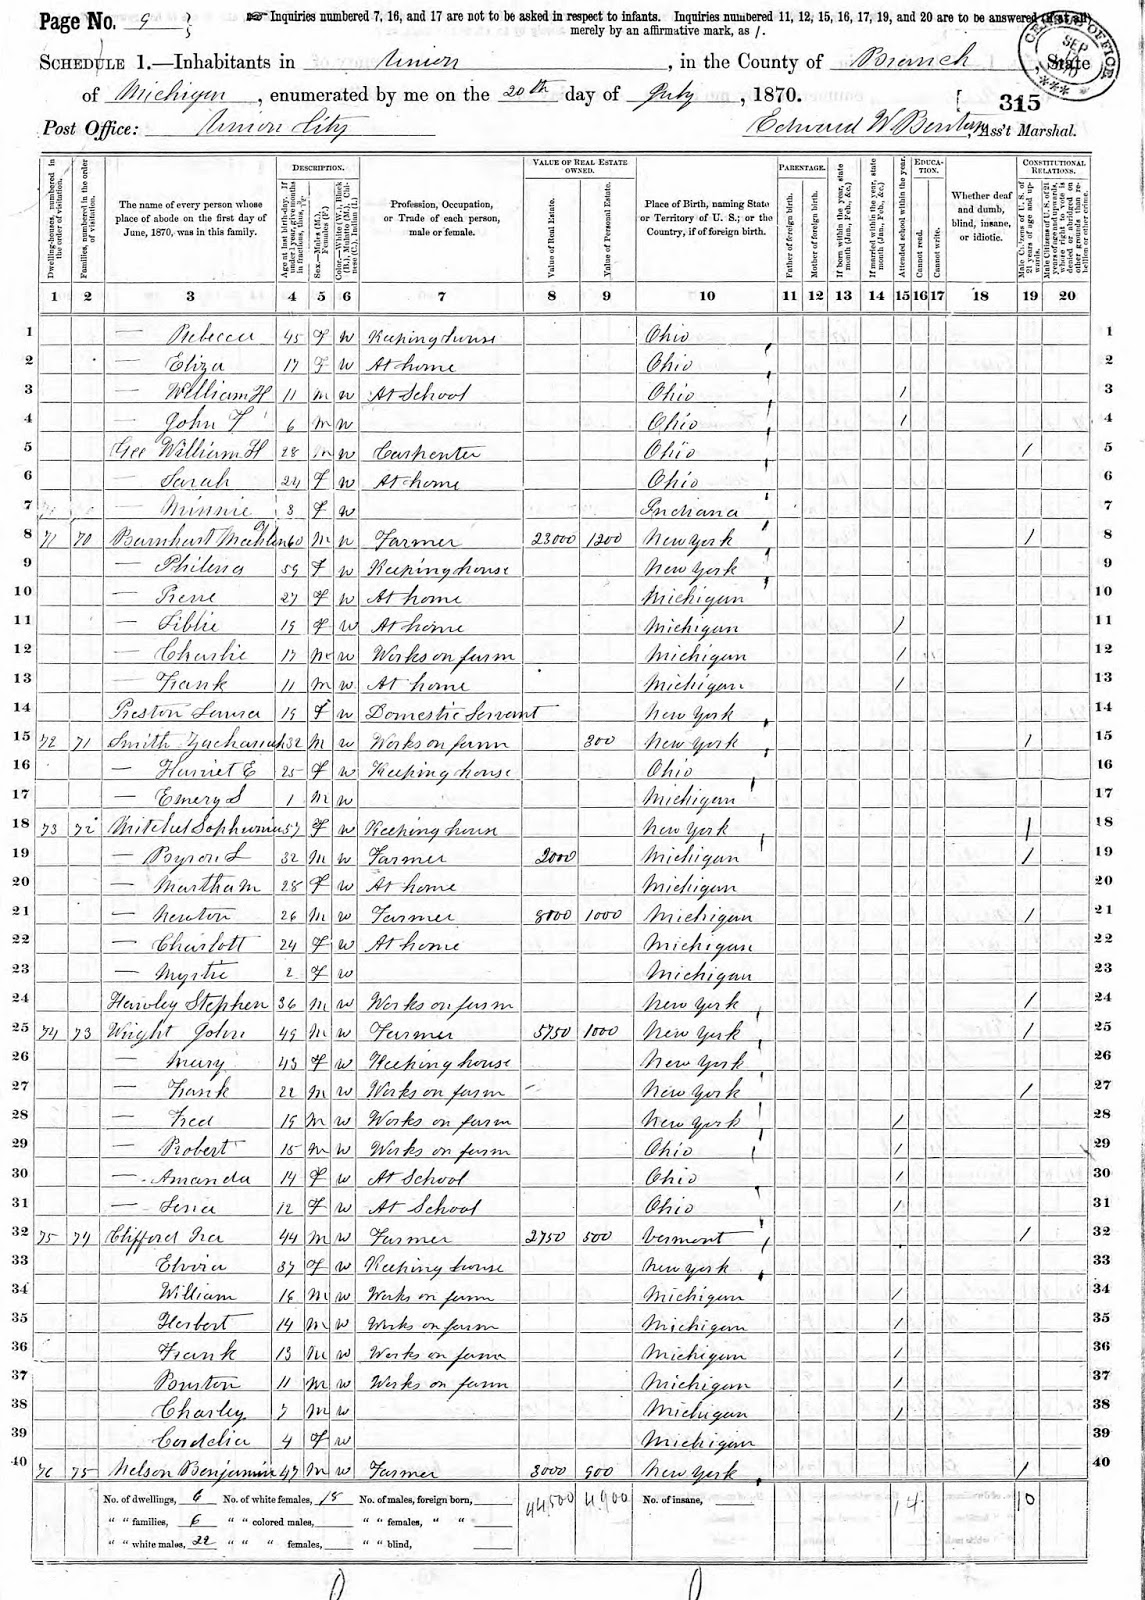 Page No. 9 Inquiries numbered 7, 16, and 17 are not to be asked in respect to infants. Inquiries numbered 11, 12, 15, 16, 17, 19, and 20 are to be answered (if at all)
merely by an affirmative mark, as /.
SCHEDULE 1.—Inhabitants in Union, in the County of Branch, State
of Michigan, enumerated by me on the 20th day of July, 1870.
315
Post Office: Union City Edward W. Benton, Ass't Marshal.
CENSUS OFFICE SEP 1870
DESCRIPTION. VALUE OF REAL ESTATE OWNED. PARENTAGE. EDUCATION. CONSTITUTIONAL RELATIONS.
Dwelling-houses, numbered in the order of visitation.
Families, numbered in the order of visitation.
The name of every person whose place of abode on the first day of June, 1870, was in this family.
Age at last birth-day. If under 1 year, give months in fractions, thus, 3/12
Sex.—Males (M.), Females (F.)
Color.—White (W.), Black (B.), Mulatto (M.), Chinese (C.), Indian (I.)
Profession, Occupation, or Trade of each person, male or female.
Value of Real Estate.
Value of Personal Estate.
Place of Birth, naming State or Territory of U. S.; or the Country, if of foreign birth.
Father of foreign birth.
Mother of foreign birth.
If born within the year, state month (Jan., Feb., &c.)
If married within the year, state month (Jan., Feb., &c.)
Attended school within the year.
Cannot read.
Cannot write.
Whether deaf and dumb, blind, insane, or idiotic.
Male Citizens of U. S. of 21 years of age and upwards.
Male Citizens of U. S. of 21 years of age and upwards, whose right to vote is denied or abridged on other grounds than rebellion or other crime.
1 2 3 4 5 6 7 8 9 10 11 12 13 14 15 16 17 18 19 20
1 — Rebecca 45 F W Keeping house Ohio 1
2 — Eliza 17 F W At home Ohio 2
3 — William H 11 M W At School Ohio / 3
4 — John F 6 M W Ohio / 4
5 Gee William H 28 M W Carpenter Ohio / 5
6 — Sarah 24 F W At home Ohio 6
7 — Minnie 3 F W Indiana 7
8 71 70 Barnhart Mathlin 60 M W Farmer 23000 1200 New York / 8
9 — Philena 59 F W Keeping house New York 9
10 — Rene 27 F W At home Michigan 10
11 — Libbie 19 F W At home Michigan / 11
12 — Charlie 17 M W Works on farm Michigan / 12
13 — Frank 11 M W At home Michigan / 13
14 Preston Laura 19 F W Domestic Servant New York 14
15 72 71 Smith Zachariah 32 M W Works on farm 300 New York / 15
16 — Harriet E 25 F W Keeping house Ohio 16
17 — Emery S 1 M W Michigan 17
18 73 72 Mitchel Sophronia 57 F W Keeping house New York / 18
19 — Byron S 32 M W Farmer 2000 Michigan / 19
20 — Martha M 28 F W At home Michigan 20
21 — Newton 26 M W Farmer 8000 1000 Michigan / 21
22 — Charlott 24 F W At home Michigan 22
23 — Myrtie 2 F W Michigan 23
24 Hawley Stephen 36 M W Works on farm New York / 24
25 74 73 Wright John 49 M W Farmer 5750 1000 New York / 25
26 — Mary 43 F W Keeping house New York 26
27 — Frank 22 M W Works on farm New York / 27
28 — Fred 19 M W Works on farm New York / 28
29 — Robert 15 M W Works on farm Ohio / 29
30 — Amanda 14 F W At School Ohio / 30
31 — Lena 12 F W At School Ohio / 31
32 75 74 Clifford Ira 44 M W Farmer 2750 500 Vermont / 32
33 Elvira 37 F W Keeping house New York 33
34 William 16 M W Works on farm Michigan / 34
35 Herbert 14 M W Works on farm Michigan / 35
36 Frank 13 M W Works on farm Michigan / 36
37 Burton 11 M W Works on farm Michigan / 37
38 Charley 7 M W Michigan / 38
39 Cordelia 4 F W Michigan 39
40 76 75 Nelson Benjamin 47 M W Farmer 3000 900 New York / 40
No. of dwellings, 6 No. of white females, 18 No. of males, foreign born, 44,500 4,900 No. of insane, 14 10
" " families, 6 " " colored males, " " females, " "
" " white males, 22 " " " females, " " blind,